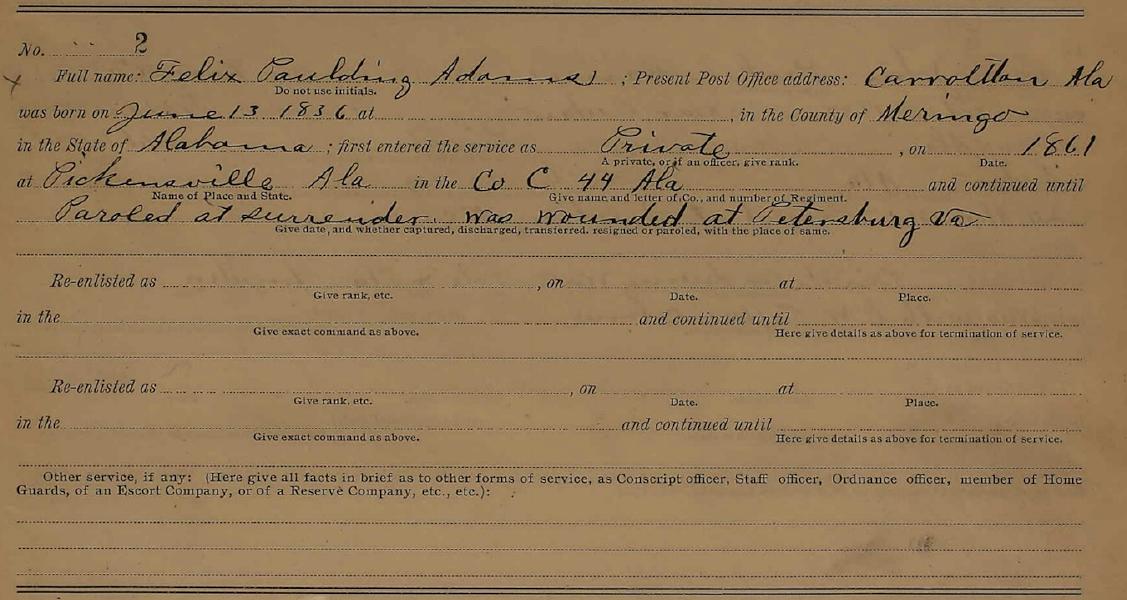 No. 2
Full name: Felix Paulding Adams ; Present Post Office address: Carrollton Ala
Do not use initials.
was born on June 13 1836 at , in the County of Meringo
in the State of Alabama ; first entered the service as Private , on 1861
A private, or if an officer, give rank. Date.
at Pickensville Ala in the Co C 44 Ala and continued until
Name of Place and State. Give name and letter of Co., and number of Regiment.
Paroled at surrender. was wounded at Petersburg Va
Give date, and whether captured, discharged, transferred. resigned or paroled, with the place of same.
Re-enlisted as , on at
Give rank, etc. Date. Place.
in the and continued until
Give exact command as above. Here give details as above for termination of service.
Re-enlisted as , on at
Give rank, etc. Date. Place.
in the and continued until
Give exact command as above. Here give details as above for termination of service.
Other service, if any: (Here give all facts in brief as to other forms of service, as Conscript officer, Staff officer, Ordnance officer, member of Home
Guards, of an Escort Company, or of a Reserve Company, etc., etc.):